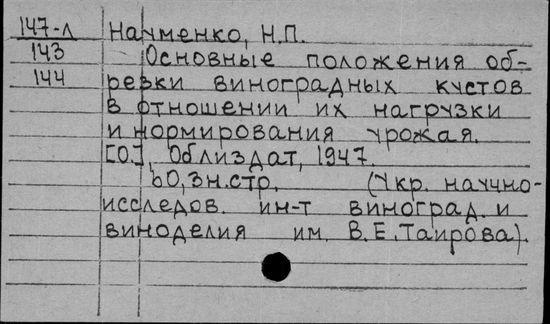 147-л Науменко, Н.П.
143 Основные положения об-
144 резки виноградных кустов
в отношении их нагрузки
и нормирования урожая.
[О.], Облиздат, 1947.
60,3н.стр. (Укр. научно-
исследов. ин-т виноград. и
виноделия им. В.Е.Таирова).